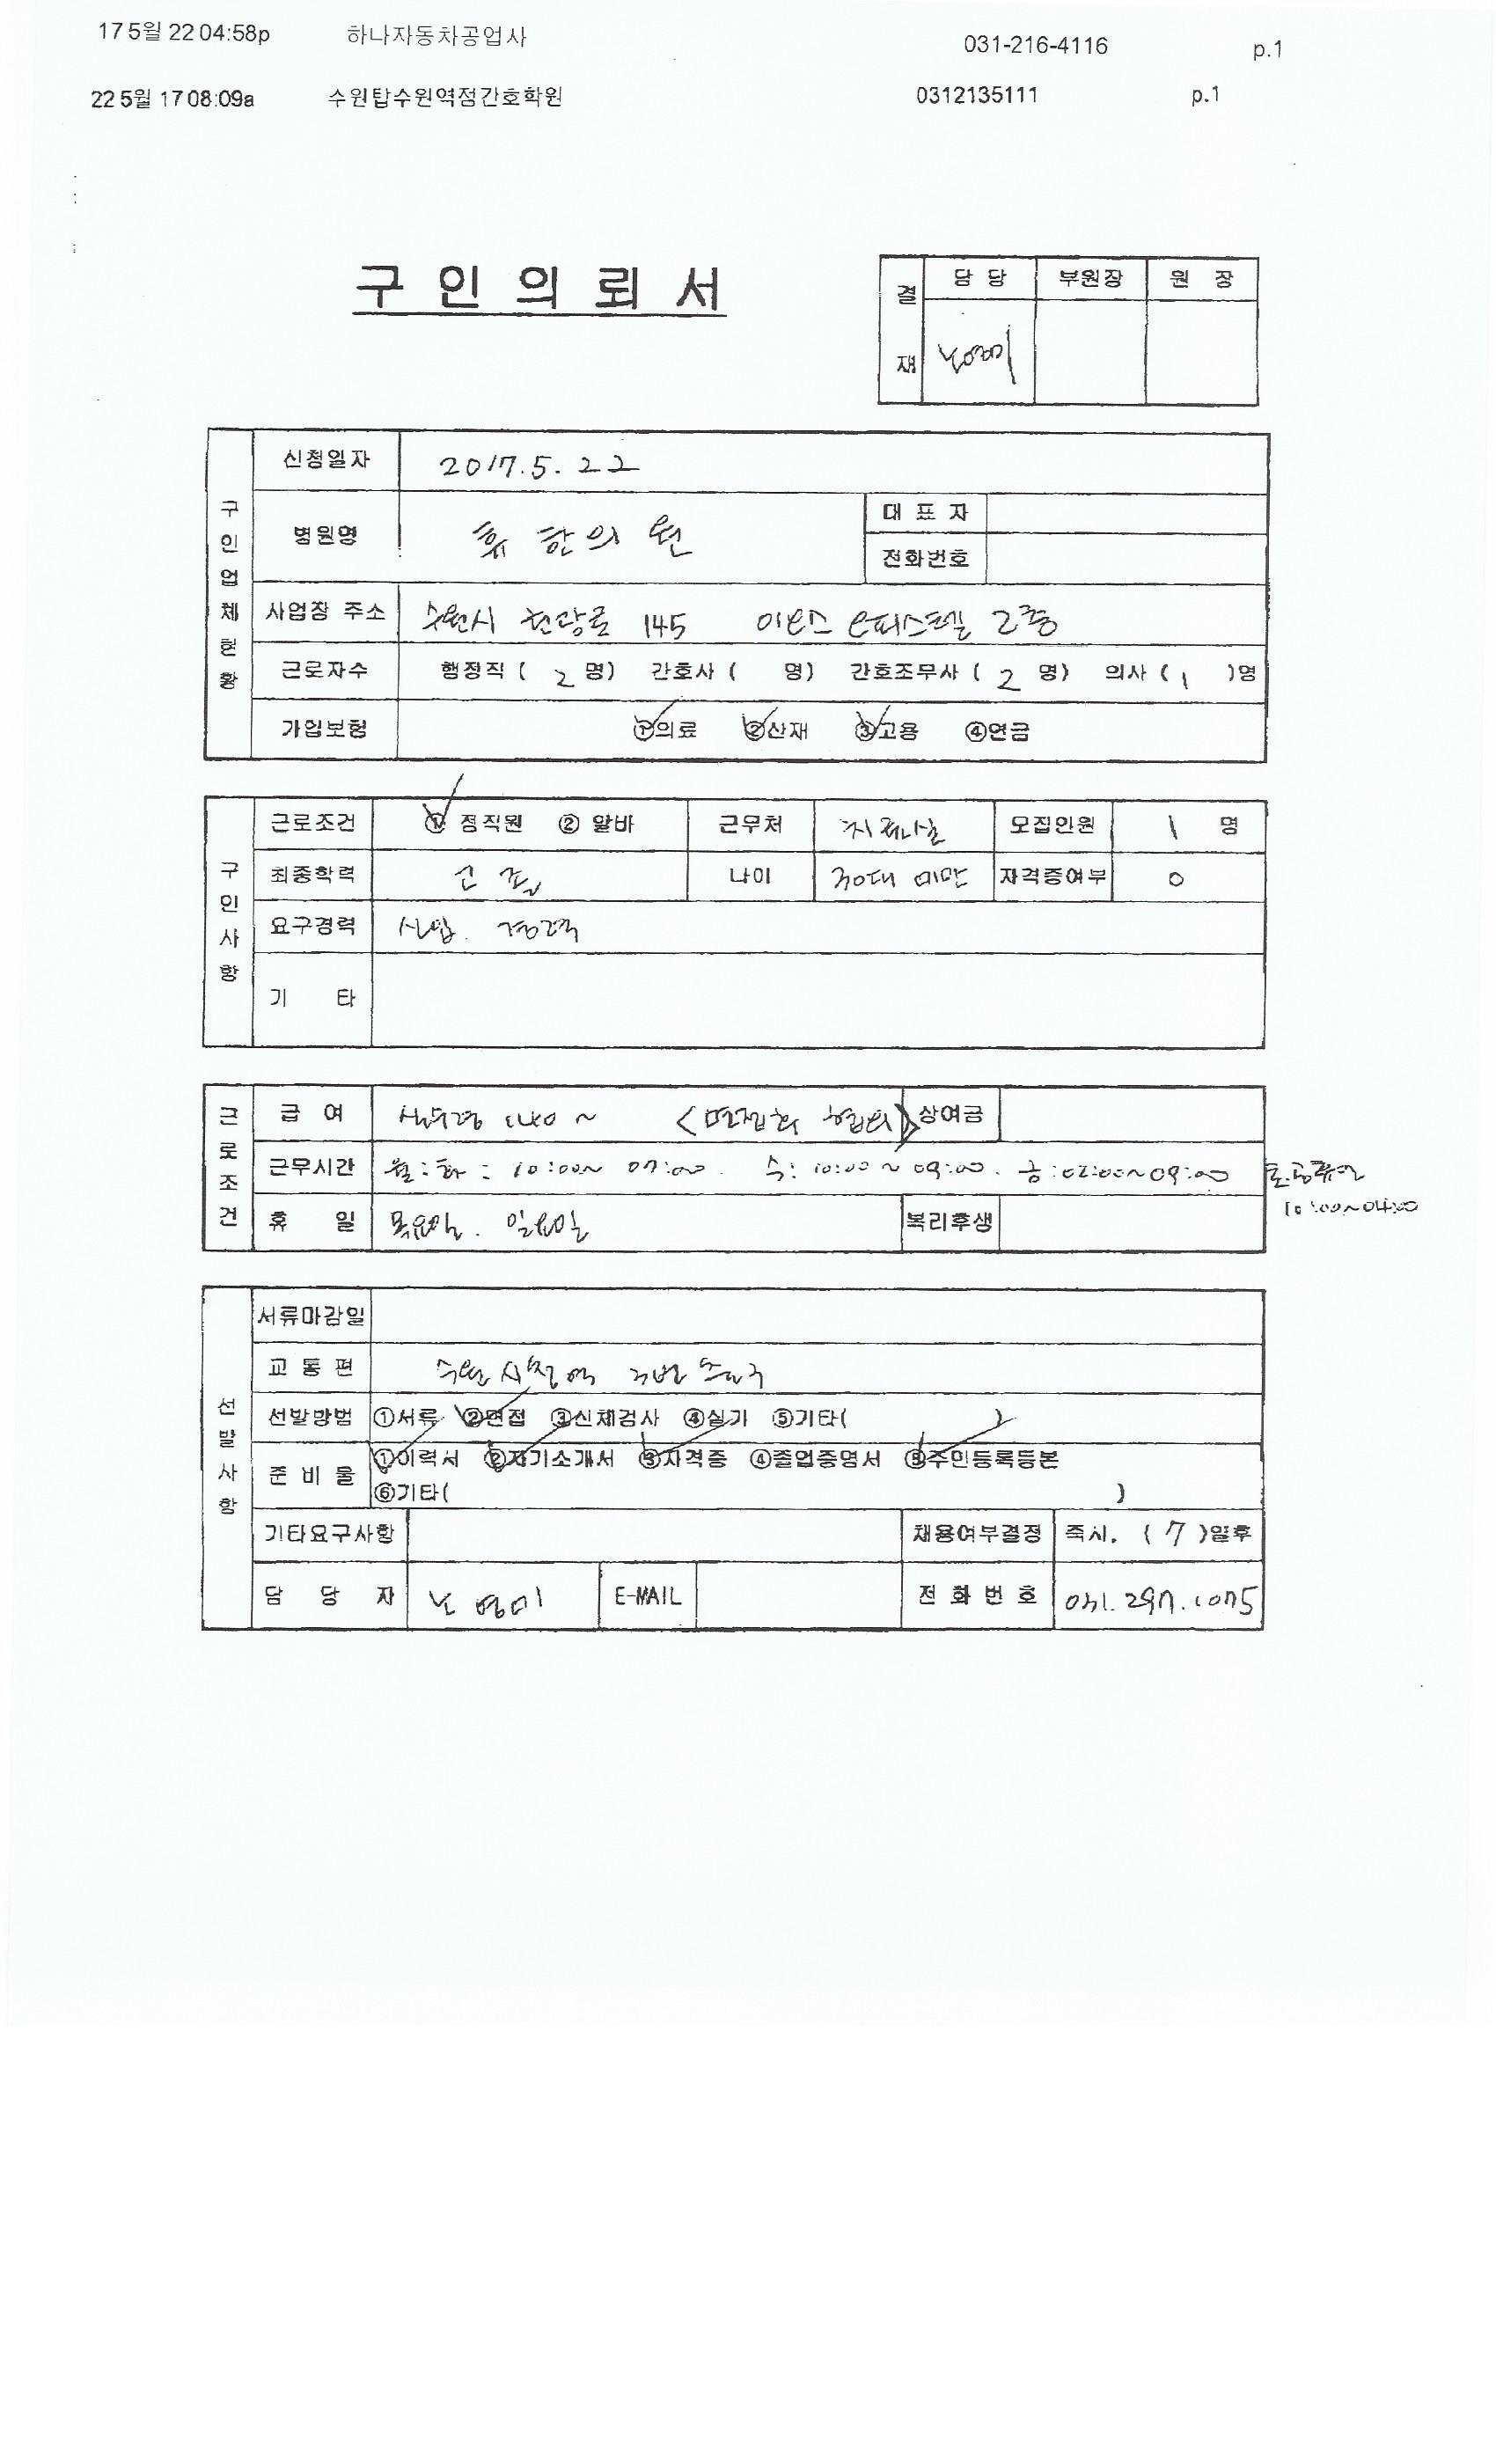 17 5월 22 04:58p 하나자동차공업사 031-216-4116 p.1
22 5월 17 08:09a 수원탑수원역점간호학원 0312135111 p.1
구 인 의 뢰 서
결재 담 당 부원장 원 장
구인업체현황
신청일자 2017.5.22
병원명 휴 한의원
대 표 자
전화번호
사업장 주소 수원시 권광로 145 2층
근로자수 행정직 ( 2 명) 간호사 ( 명) 간호조무사 ( 2 명) 의사 ( 1 )명
가입보험 ①의료 ②산재 ③고용 ④연금
구인사항
근로조건 ① 정직원 ② 알바 근무처 치료실 모집인원 1 명
최종학력 고졸 나이 30대 미만 자격증여부 O
요구경력 신입. 경력
기 타
근로조건
급 여 140 ~ (면접후 협의) 상여금
근무시간 월:화: 10:00~ 07:00. 수: 10:00 ~ 09:00. 금:02:00~09:00 토.공휴일
10:00~04:00
휴 일 목요일. 일요일 복리후생
선발사항
서류마감일
교 통 편 수원 시청역
선발방법 ①서류 ②면접 ③신체검사 ④실기 ⑤기타( )
준 비 물 ①이력서 ②자기소개서 ③자격증 ④졸업증명서 ⑤주민등록등본
⑥기타( )
기타요구사항 채용여부결정 즉시. ( 7 )일후
담 당 자 노영미 E-MAIL 전 화 번 호 031.297.1075